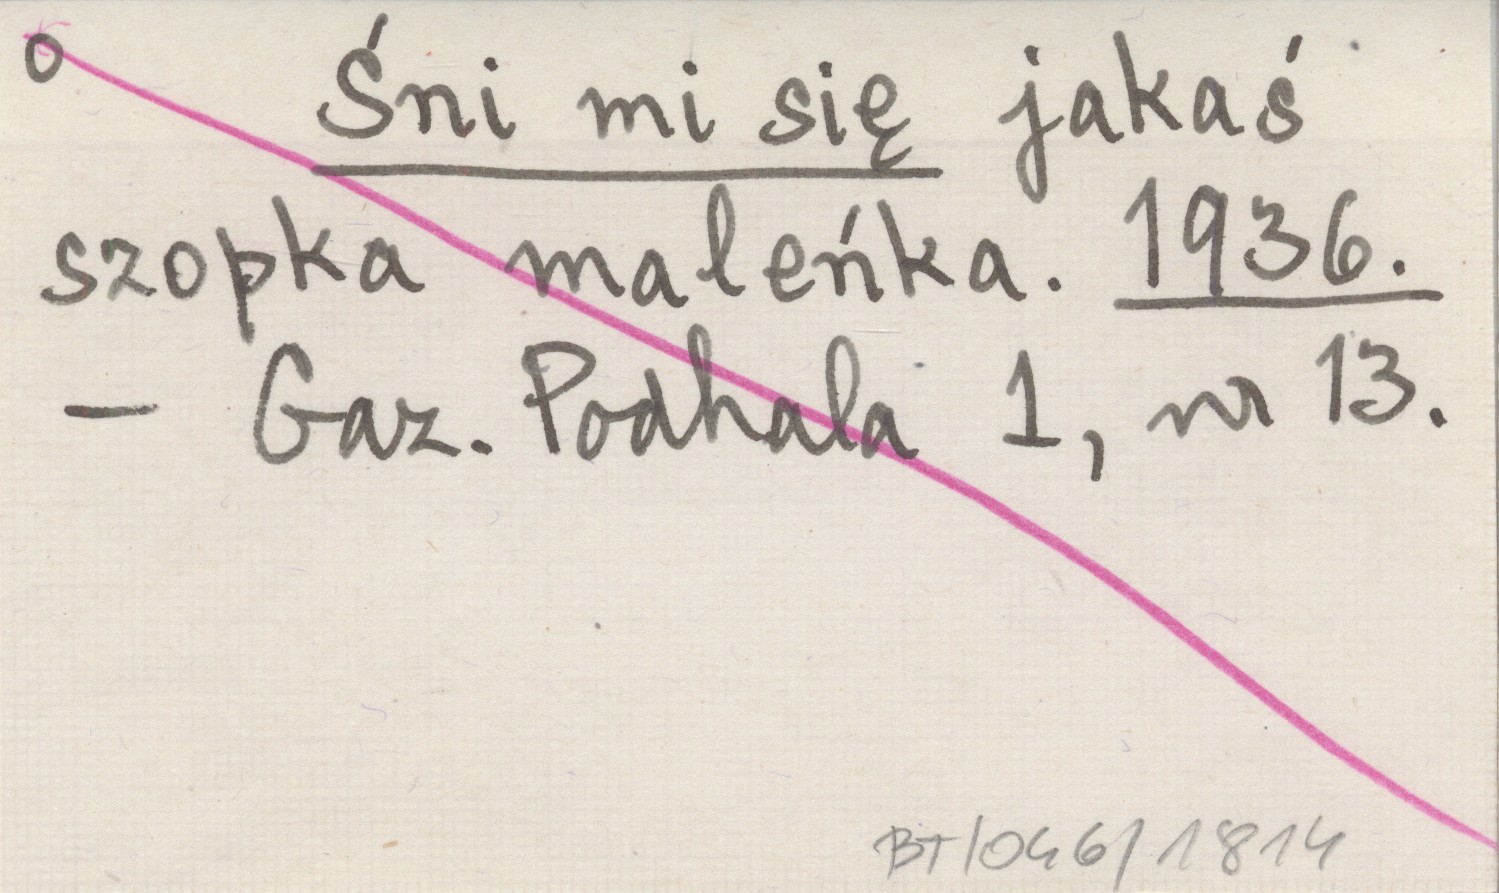 o Śni mi się jakaś
szopka maleńka. 1936.
— Gaz. Podhala 1, nr 13.
BT/046/1814